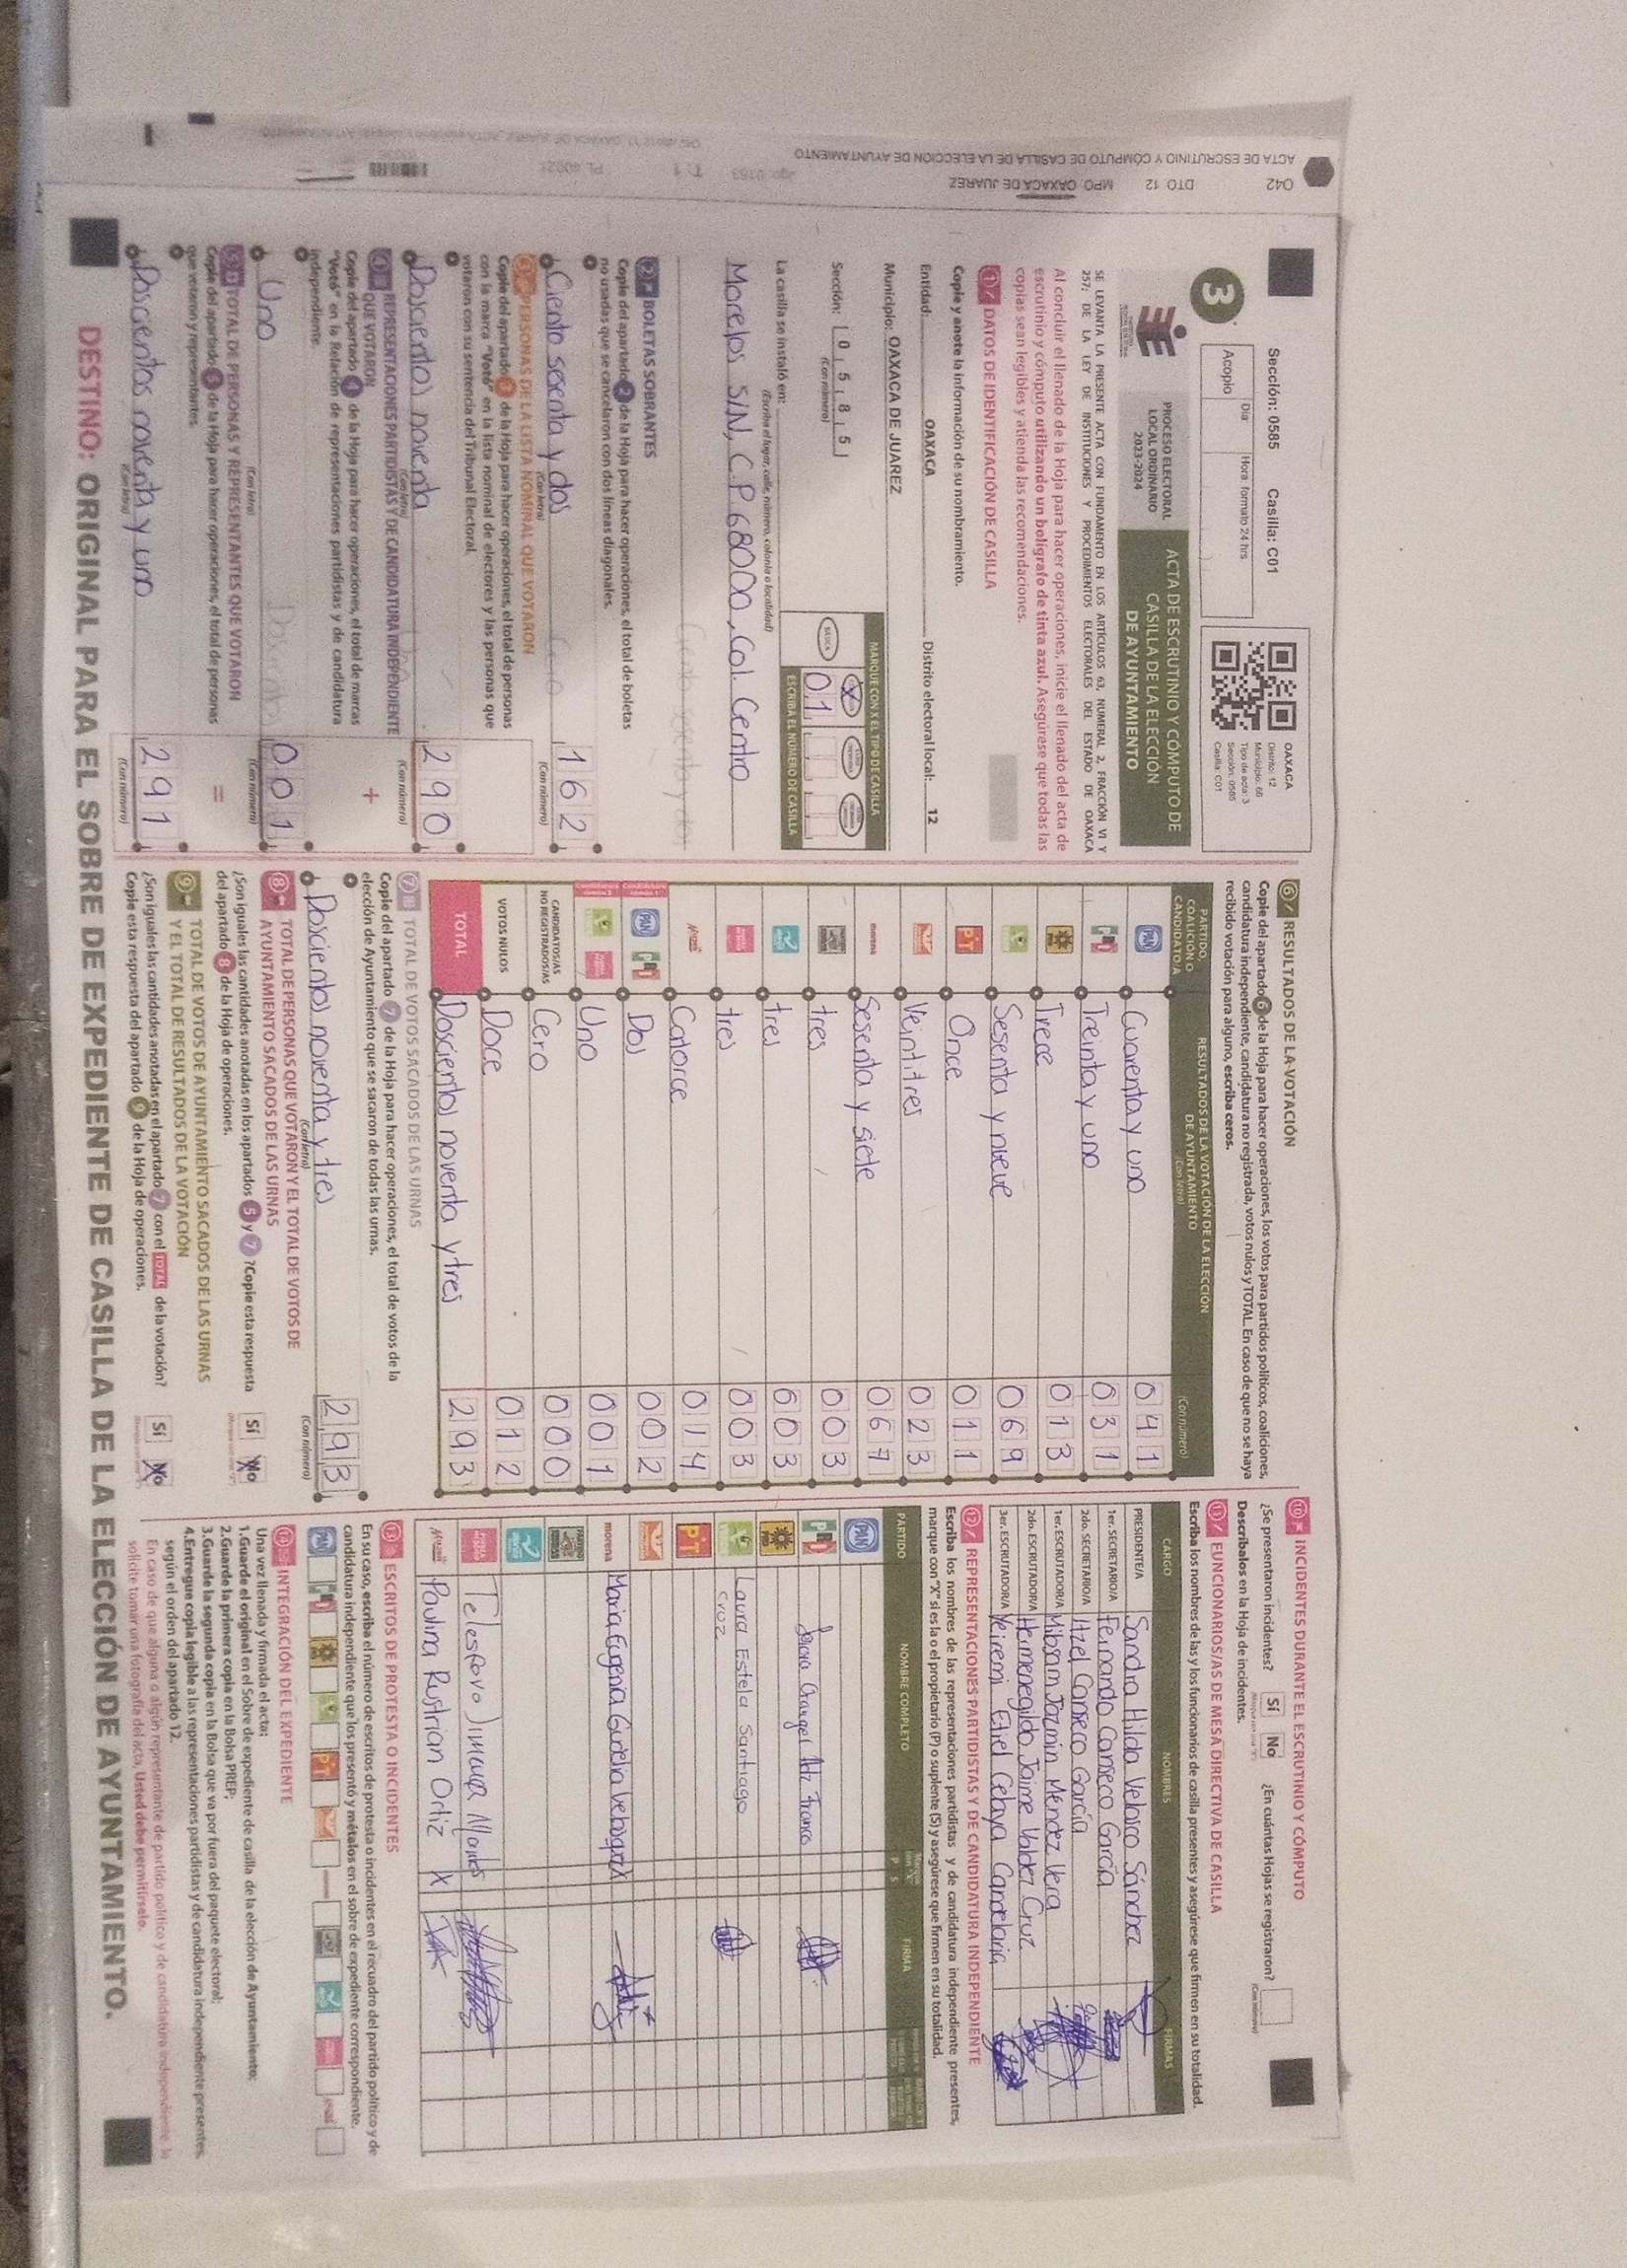 042 DTO 12 MPO OAXACA DE JUAREZ
ACTA DE ESCRUTINIO Y CÓMPUTO DE CASILLA DE LA ELECCIÓN DE AYUNTAMIENTO
Sección: 0585 Casilla: C01
3
Día Hora: formato 24 hrs
Acopio
OAXACA
Distrito: 12
Municipio: 66
Tipo de acta: 3
Sección: 0585
Casilla: C01
PROCESO ELECTORAL
LOCAL ORDINARIO
2023-2024
ACTA DE ESCRUTINIO Y CÓMPUTO DE
CASILLA DE LA ELECCIÓN
DE AYUNTAMIENTO
SE LEVANTA LA PRESENTE ACTA CON FUNDAMENTO EN LOS ARTÍCULOS 63, NUMERAL 2, FRACCIÓN VI Y
257; DE LA LEY DE INSTITUCIONES Y PROCEDIMIENTOS ELECTORALES DEL ESTADO DE OAXACA
Al concluir el llenado de la Hoja para hacer operaciones, inicie el llenado del acta de
escrutinio y cómputo utilizando un bolígrafo de tinta azul. Asegúrese que todas las
copias sean legibles y atienda las recomendaciones.
1 DATOS DE IDENTIFICACIÓN DE CASILLA
Copie y anote la información de su nombramiento.
Entidad: OAXACA Distrito electoral local: 12
Municipio: OAXACA DE JUAREZ
MARQUE CON X EL TIPO DE CASILLA
Sección: 0585
(Con número)
BÁSICA X
01
ESCRIBA EL NÚMERO DE CASILLA
La casilla se instaló en:
(Escriba el lugar, calle, número, colonia o localidad)
Morelos S/N, C.P 68000, Col. Centro
2 BOLETAS SOBRANTES
Copie del apartado 2 de la Hoja para hacer operaciones, el total de boletas
no usadas que se cancelaron con dos líneas diagonales.
Ciento sesenta y dos 162
(Con letra) (Con número)
3 PERSONAS DE LA LISTA NOMINAL QUE VOTARON
Copie del apartado 3 de la Hoja para hacer operaciones, el total de personas
con la marca "Votó" en la lista nominal de electores y las personas que
votaron con su sentencia del Tribunal Electoral.
Doscientos noventa 290
(Con letra) (Con número)
4 REPRESENTACIONES PARTIDISTAS Y DE CANDIDATURA INDEPENDIENTE
QUE VOTARON +
Copie del apartado 4 de la Hoja para hacer operaciones, el total de marcas
"Votó" en la Relación de representaciones partidistas y de candidatura
independiente.
Uno 001
(Con letra) (Con número)
5 TOTAL DE PERSONAS Y REPRESENTANTES QUE VOTARON
Copie del apartado 5 de la Hoja para hacer operaciones, el total de personas =
que votaron y representantes.
Doscientos noventa y uno 291
(Con letra) (Con número)
6 RESULTADOS DE LA VOTACIÓN
Copie del apartado 6 de la Hoja para hacer operaciones, los votos para partidos políticos, coaliciones,
candidatura independiente, candidatura no registrada, votos nulos y TOTAL. En caso de que no se haya
recibido votación para alguno, escriba ceros.
PARTIDO,
COALICIÓN O
CANDIDATO/A
RESULTADOS DE LA VOTACIÓN DE LA ELECCIÓN
DE AYUNTAMIENTO
(Con letra) (Con número)
PAN Cuarenta y uno 041
PRI Treinta y uno 031
PRD Trece 013
Sesenta y nueve 069
PT Once 011
Veintitres 023
morena Sesenta y siete 067
tres 003
tres 003
tres 003
Catorce 014
PAN PRI Dos 002
Uno 001
CANDIDATOS/AS
NO REGISTRADOS/AS Cero 000
VOTOS NULOS Doce 012
TOTAL Doscientos noventa y tres 293
7 TOTAL DE VOTOS SACADOS DE LAS URNAS
Copie del apartado 7 de la Hoja para hacer operaciones, el total de votos de la
elección de Ayuntamiento que se sacaron de todas las urnas.
Doscientos noventa y tres 293
(Con letra) (Con número)
8 TOTAL DE PERSONAS QUE VOTARON Y EL TOTAL DE VOTOS DE
AYUNTAMIENTO SACADOS DE LAS URNAS
¿Son iguales las cantidades anotadas en los apartados 5 y 7? Copie esta respuesta
del apartado 8 de la Hoja de operaciones. Sí No
9 TOTAL DE VOTOS DE AYUNTAMIENTO SACADOS DE LAS URNAS
Y EL TOTAL DE RESULTADOS DE LA VOTACIÓN
¿Son iguales las cantidades anotadas en el apartado 7 con el TOTAL de la votación?
Copie esta respuesta del apartado 9 de la Hoja de operaciones. Sí No
10 INCIDENTES DURANTE EL ESCRUTINIO Y CÓMPUTO
¿Se presentaron incidentes? Sí No ¿En cuántas Hojas se registraron?
(Con número)
Descríbalos en la Hoja de incidentes.
11 FUNCIONARIOS/AS DE MESA DIRECTIVA DE CASILLA
Escriba los nombres de las y los funcionarios de casilla presentes y asegúrese que firmen en su totalidad.
CARGO NOMBRES FIRMAS
PRESIDENTE/A Sandra Hilda Velasco Sánchez
1er. SECRETARIO/A Fernando Canseco García
2do. SECRETARIO/A Itzel Canseco García
1er. ESCRUTADOR/A Mibsam Jazmin Méndez Vera
2do. ESCRUTADOR/A Hermenegildo Jaime Valdez Cruz
3er. ESCRUTADOR/A Yeiremi Ethel Celaya Candelaria
12 REPRESENTACIONES PARTIDISTAS Y DE CANDIDATURA INDEPENDIENTE
Escriba los nombres de las representaciones partidistas y de candidatura independiente presentes,
marque con "X" si es la o el propietario (P) o suplente (S) y asegúrese que firmen en su totalidad.
PARTIDO NOMBRE COMPLETO P S FIRMA
PAN
PRI
PRD
Laura Estela Santiago
Cruz
PT
morena Maria Eugenia Gudelia X
Telesforo
Paulina Rustrian Ortiz X
13 ESCRITOS DE PROTESTA O INCIDENTES
En su caso, escriba el número de escritos de protesta o incidentes en el recuadro del partido político y de
candidatura independiente que los presentó y métalos en el sobre de expediente correspondiente.
14 INTEGRACIÓN DEL EXPEDIENTE
Una vez llenada y firmada el acta:
1.Guarde el original en el Sobre de expediente de casilla de la elección de Ayuntamiento;
2.Guarde la primera copia en la Bolsa PREP;
3.Guarde la segunda copia en la Bolsa que va por fuera del paquete electoral;
4.Entregue copia legible a las representaciones partidistas y de candidatura independiente presentes,
según el orden del apartado 12.
En caso de que alguna o algún representante de partido político y de candidatura independiente, le
solicite tomar una fotografía del acta, Usted debe permitírselo.
DESTINO: ORIGINAL PARA EL SOBRE DE EXPEDIENTE DE CASILLA DE LA ELECCIÓN DE AYUNTAMIENTO.